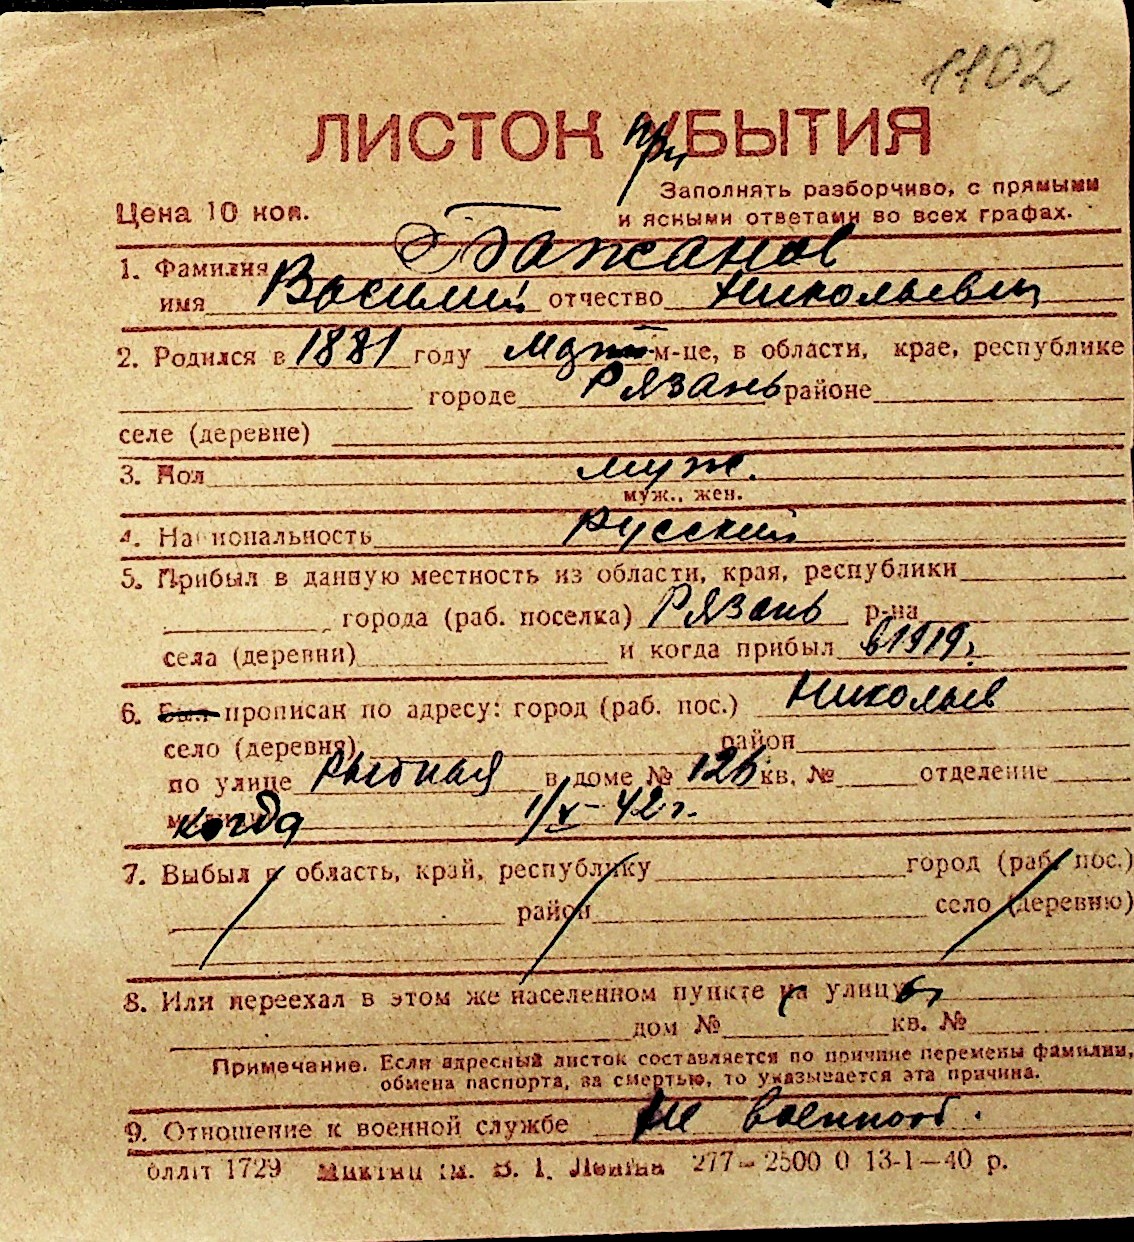 1102
ЛИСТОК при УБЫТИЯ
Заполнять разборчиво, с прямыми
Цена 10 коп. и ясными ответами во всех графах.
1. Фамилия Бажанов
имя Василий отчество Николаевич
2. Родился в 1881 году м-це, в области, крае, республике
городе Рязань районе
селе (деревне)
3. Пол муж.
муж., жен.
4. Национальность русский
5. Прибыл в данную местность из области, края, республики
города (раб. поселка) Рязань р-на
села (деревни) и когда прибыл в 1919 г.
6. Был прописан по адресу: город (раб. пос.) Николаев
село (деревня) район
по улице Рыбная в доме № 126 кв. № отделение
когда 1/V-42 г.
7. Выбыл в область, край, республику город (раб. пос.)
район село (деревню)
8. Или переехал в этом же населенном пункте на улицу
дом № кв. №
Примечание. Если адресный листок составляется по причине перемены фамилии,
обмена паспорта, за смертью, то указывается эта причина.
9. Отношение к военной службе Не военнооб.
1729 277–2500 0 13-1–40 р.